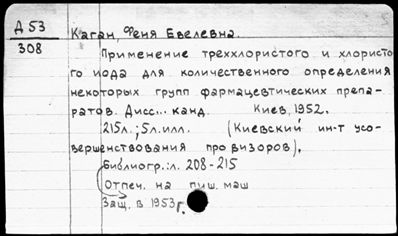 Д 53
308
Каган, Феня Евелевна.
Применение треххлористого и хлористо-
го иода для количественного определения
некоторых групп фармацевтических препа-
ратов. Дисс... канд. Киев, 1952.
215л.; 5л.илл. (Киевский ин-т усо-
вершенствования провизоров).
Библиогр.: л. 208-215
Отпеч. на пиш. маш
Защ. в 1953г.